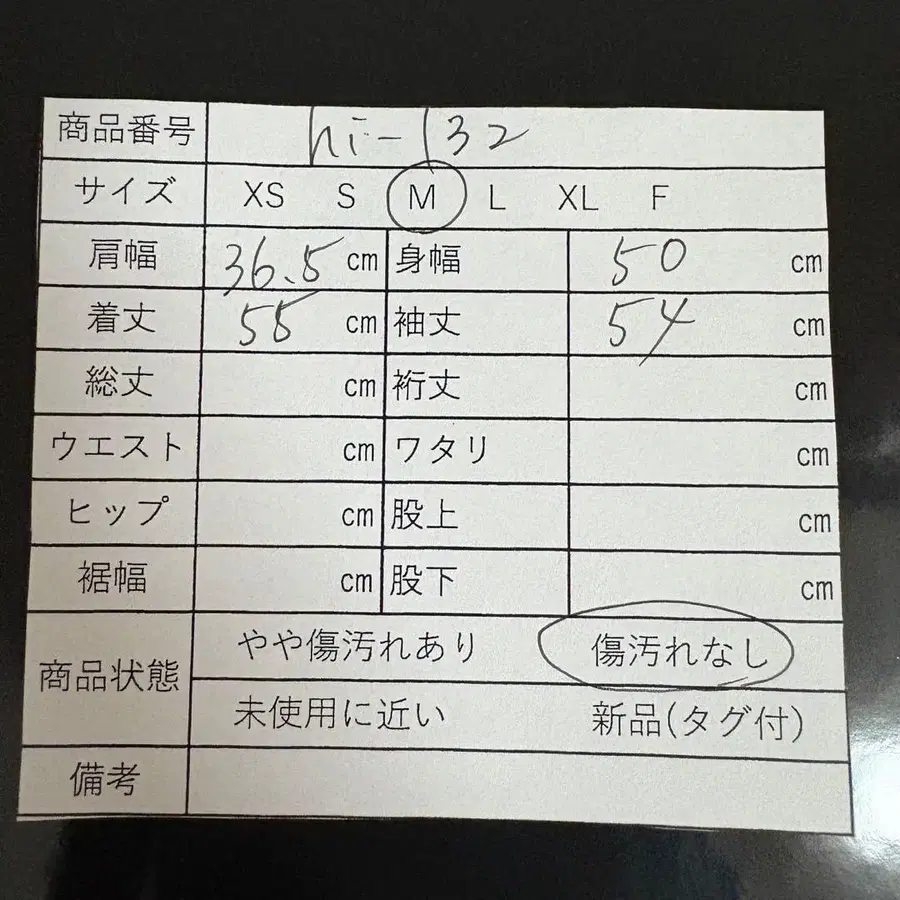 商品番号 hi-132
サイズ XS S M L XL F
肩幅 36.5 cm 身幅 50 cm
着丈 55 cm 袖丈 54 cm
総丈 cm 裄丈 cm
ウエスト cm ワタリ cm
ヒップ cm 股上 cm
裾幅 cm 股下 cm
商品状態 やや傷汚れあり 傷汚れなし
未使用に近い 新品(タグ付)
備考